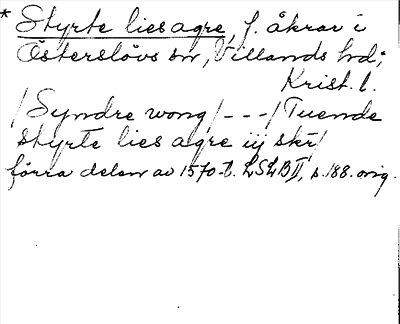 * Styrte lies agre, f. åkrar i
Österslövs sn, Villands hd;
Krist. l.
/Syndre wong/ - - - /Tuende
styrte lies agre iij skr/
förra delen av 1570-t. LSLB II, s. 188. orig.